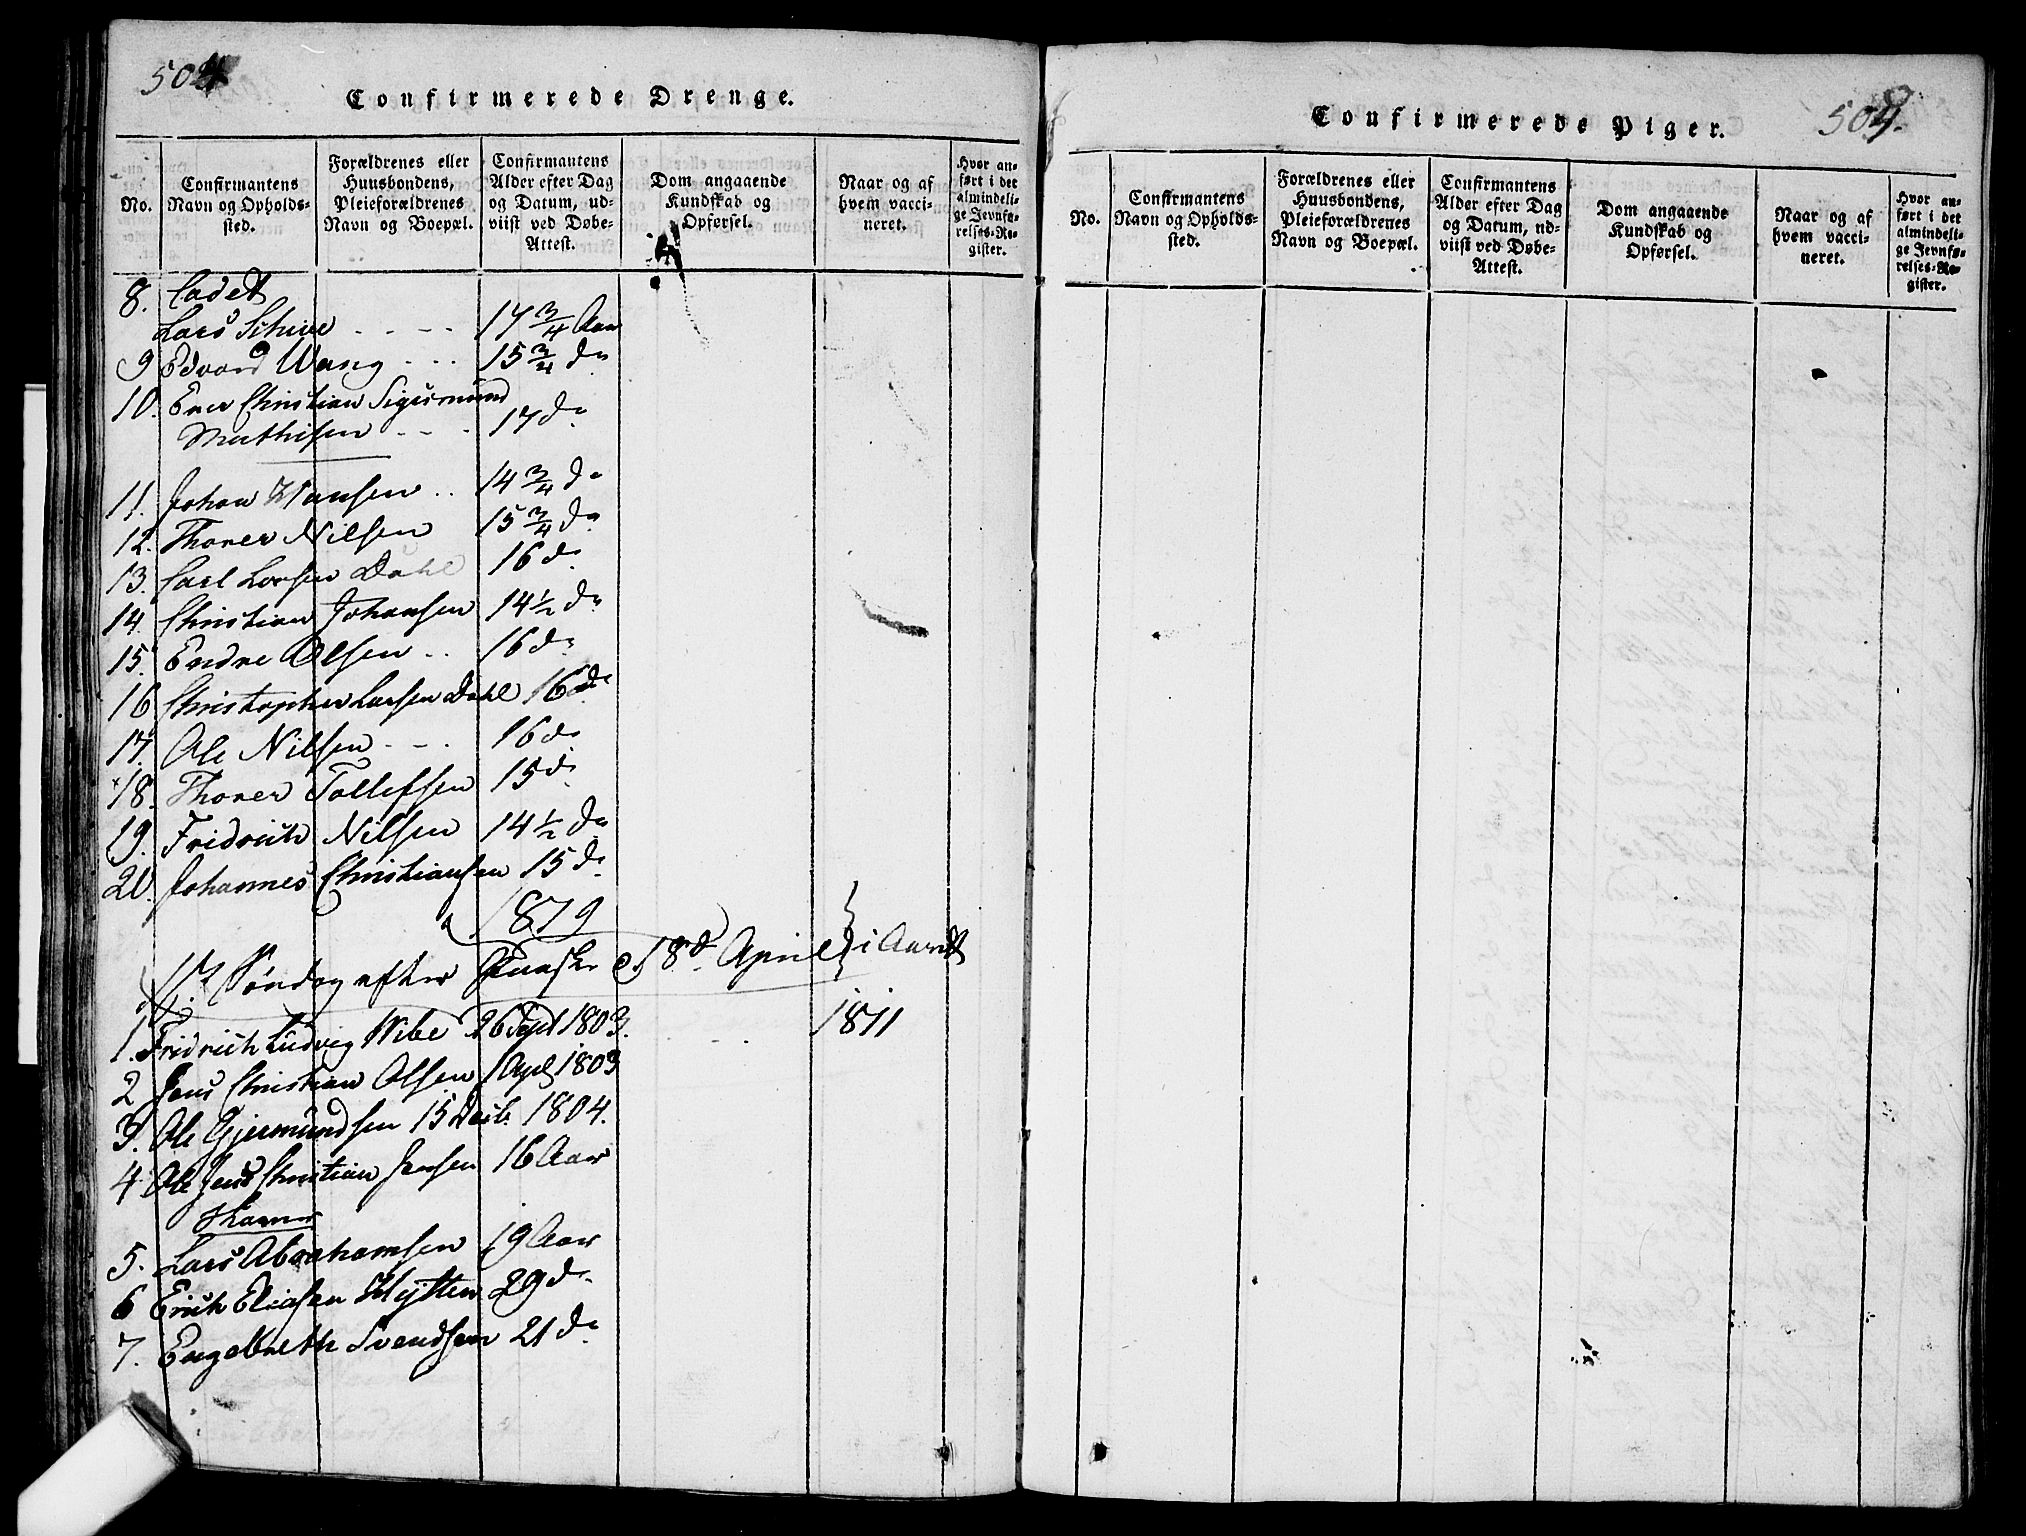 504
Confirmerede Drenge.
No.
Confirmantens Navn og Opholds-sted.
Forældrenes eller Huusbondens, Pleieforældrenes Navn og Boepæl.
Confirmantens Alder efter Dag og Datum, ud-viist ved Døbe-Attest.
Dom angaaende Kundskab og Opførsel.
Naar og af hvem vacci-neret.
Hvor an-ført i det almindeli-ge Jevnfø-relses-Re-gister.
8. Cadet
Lars Schive - - - - 17 3/4 Aar
9 Edvard Wang - - - 15 3/4 do
10. Ener Christian Sigismund
Mathisen - - - 17 do
11. Johan Hansen .. 14 3/4 do
12. Thorer Nilsen 15 3/4 do
13. Carl Larsen Dahl 16 do
14. Christian Johansen 14 1/2 do
15. Endre Olsen .. 16 do
16 Christopher Larsen Dahl 16 do
17. Ole Nilsen - - - 16 do
18. Thorer Tollefsen 15 do
19. Fridrich Nilsen 14 1/2 do
20. Johannes Christiansen 15 do
18
Søndag efter Paaske d. 18de April i Aaret
1. Fridrich Ludvig Wibe 26 Sept 1803. - - - 1811
2 Jens Christian Olsen 1 Apl 1803
3. Ole Gjermundsen 15 Decb. 1804.
4 Ole Jens Christian Jensen 16 Aar
5. Lars Abrahamsen 19 Aar
6 Erich Eliasen Hytten 29 do
7. Engebreth Svendsen 21 do
Confirmerede Piger.
504.
No.
Confirmantens Navn og Opholds-sted.
Forældrenes eller Huusbondens, Pleieforældrenes Navn og Boepæl.
Confirmantens Alder efter Dag og Datum, ud-viist ved Døbe-Attest.
Dom angaaende Kundskab og Opførsel.
Naar og af hvem vacci-neret.
Hvor an-ført i det almindeli-ge Jevnfø-relses-Re-gister.